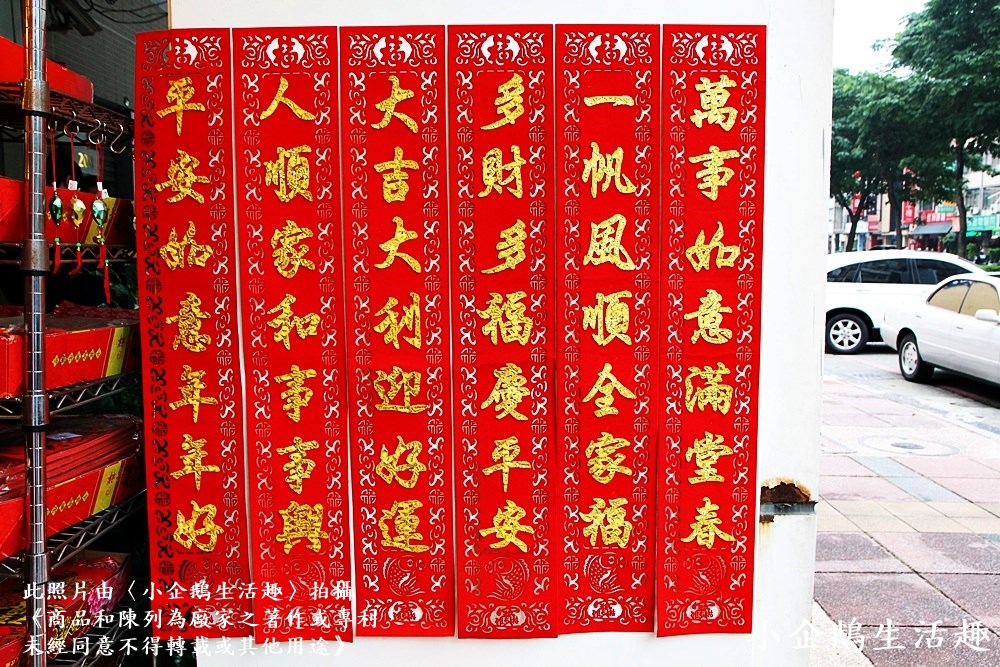 萬事如意滿堂春
一帆風順全家福
多財多福慶平安
大吉大利迎好運
人順家和事事興
平安如意年年好
此照片由〈小企鵝生活趣〉拍攝
《商品和陳列為廠家之著作或專利
未經同意不得轉載或其他用途》
小企鵝生活趣